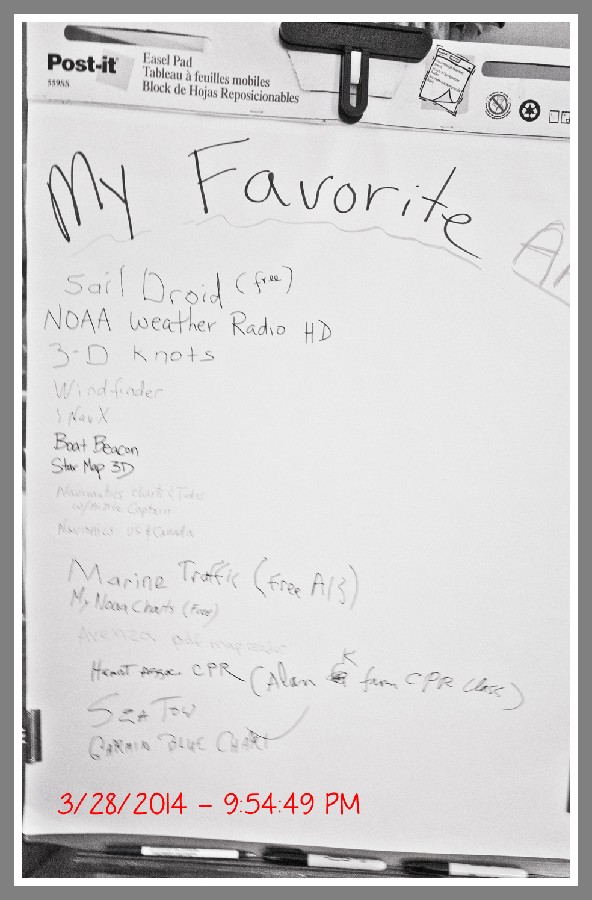 Post-it
559SS
Easel Pad
Tableau à feuilles mobiles
Block de Hojas Reposicionables
My Favorite A
Sail Droid (free)
NOAA Weather Radio HD
3-D Knots
Windfinder
iNavX
Boat Beacon
Star Map 3D
Navimatics Charts & Tides
w/Active Captain
Navionics US & Canada
Marine Traffic (Free AIS)
My Noaa Charts (Free)
Avenza pdf map reader
Heart Assoc CPR (Alan K from CPR Class)
SEA TOW
GARMIN BLUE CHART
3/28/2014 – 9:54:49 PM